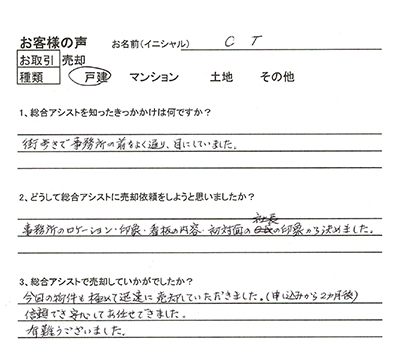 お客様の声 お名前(イニシャル) C T
お取引 売却
種類 戸建 マンション 土地 その他
1、総合アシストを知ったきっかけは何ですか?
街歩きで事務所の前をよく通り、目にしていました。
2、どうして総合アシストに売却依頼をしようと思いましたか?
社長
事務所のロケーション・印象・看板の内容・初対面の の印象から決めました。
3、総合アシストで売却していかがでしたか?
今回の物件も極めて迅速に売却していただきました。(申し込みから2カ月後)
信頼でき安心してお任せできました。
有難うございました。